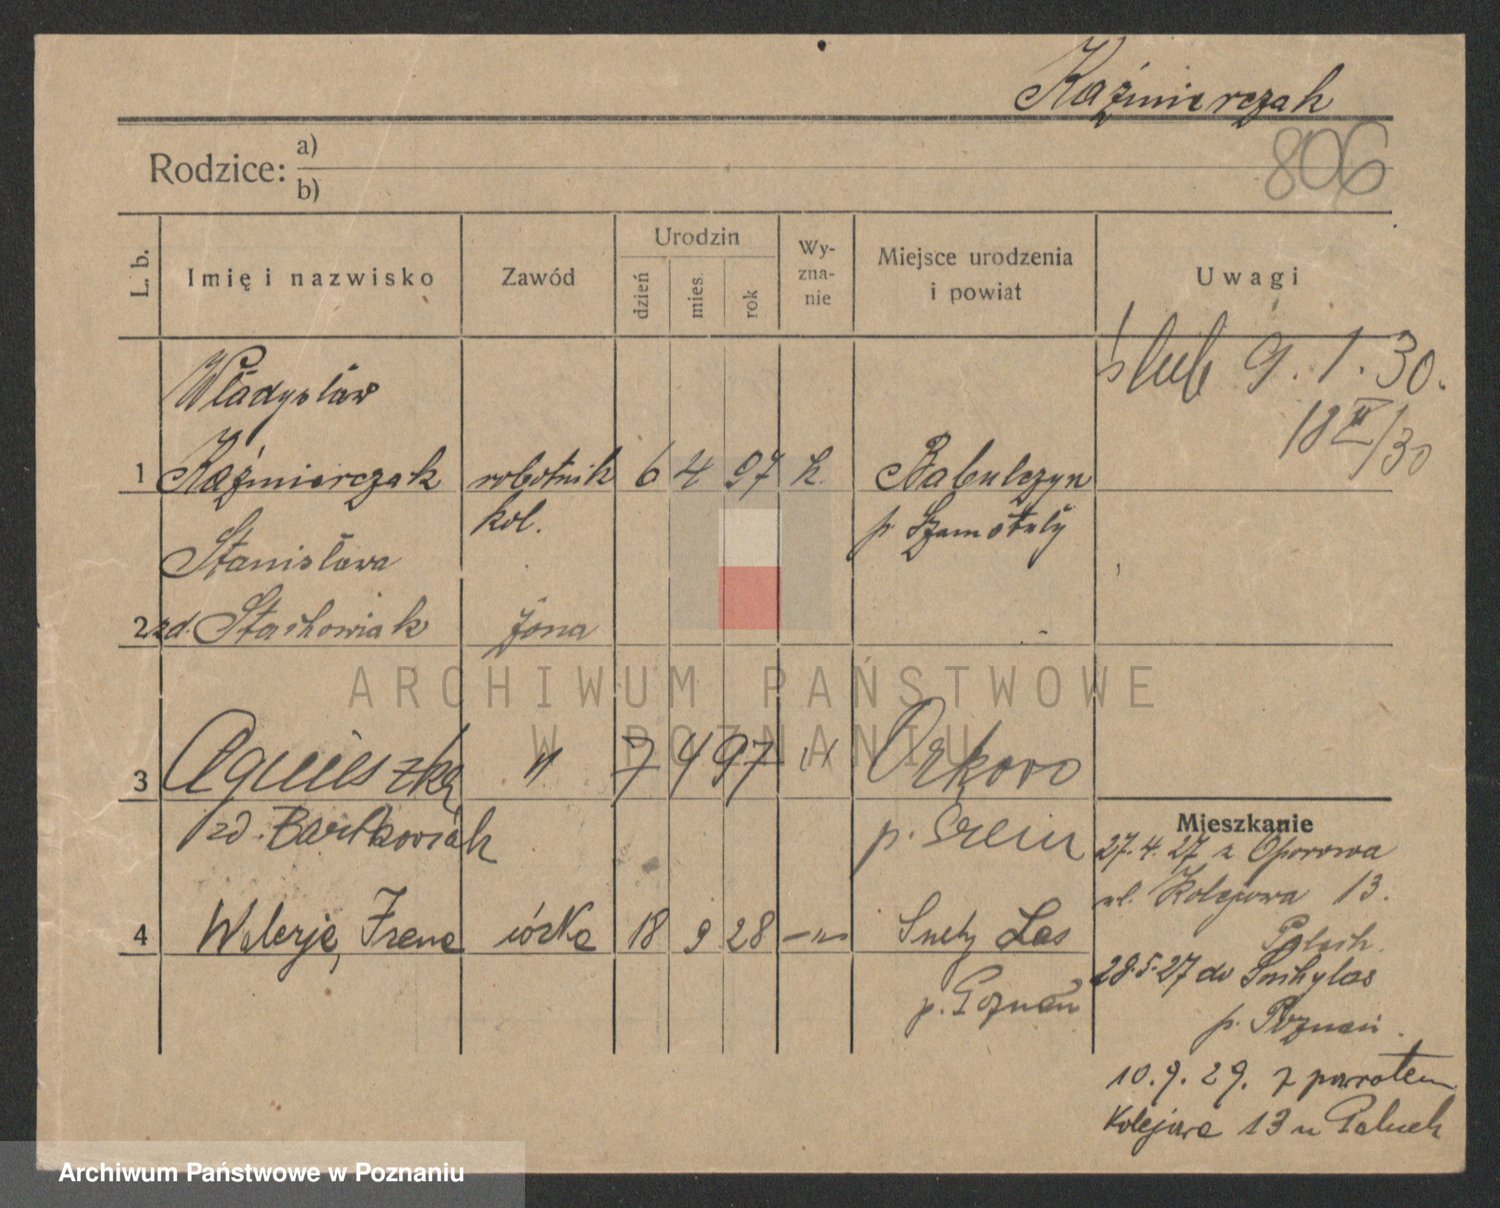 Kaźmierczak
806
Rodzice: a)
b)
L. b.
Imię i nazwisko
Zawód
Urodzin
dzień
mies.
rok
Wy-
zna-
nie
Miejsce urodzenia
i powiat
Uwagi
ślub 9. 1. 30.
18 /30
Władysław
1 Kaźmierczak robotnik 6 4 97 k. Babulczyn
kol. p. Szamotuły
Stanisława
2 zd. Stachowiak żona
ARCHIWUM PAŃSTWOWE
W POZNANIU
3 Agnieszka " 7 4 97 " Orkovo
zd. Bartkoviak p. Srem
Mieszkanie
27. 4. 27 z Oporowa
ul. Kolejowa 13.
4 Walerja, Irena córka 18 9 28 -"- Suchy Las
p. Poznań
28. 5. 27 do Suchylas
p. Poznań
10. 9. 29. z powrotem
Kolejowa 13 u Paluch
Archiwum Państwowe w Poznaniu